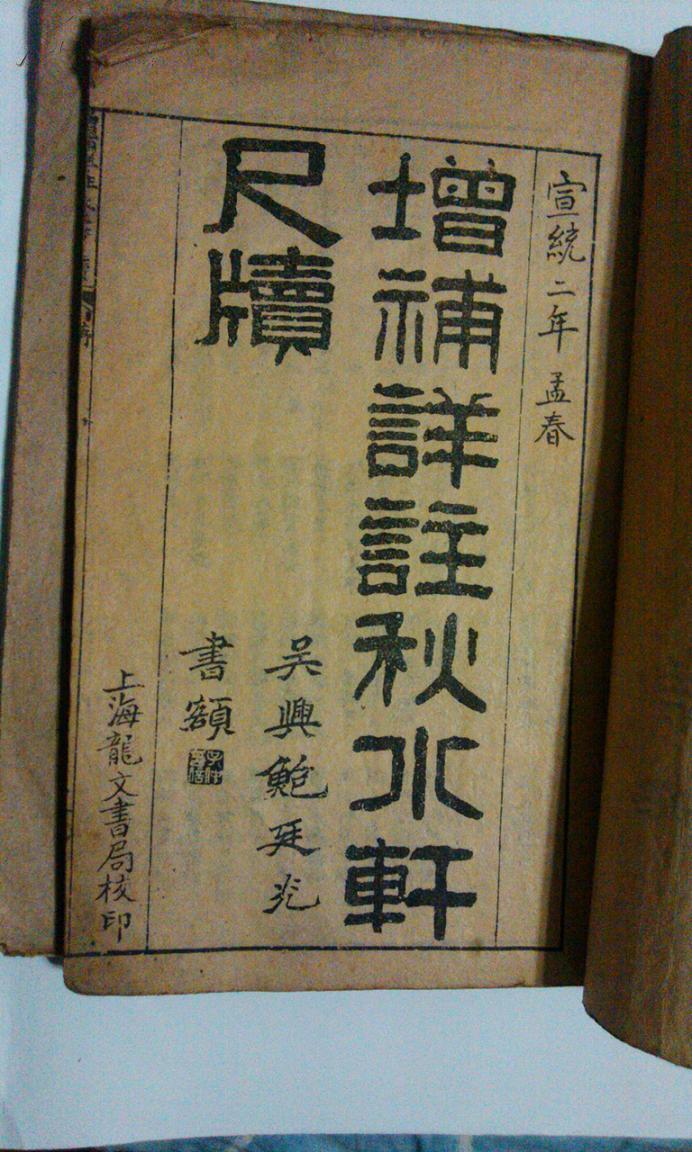 宣統二年孟春
增補詳註秋水軒
尺牘
吳興鮑廷光
書額
上海龍文書局校印